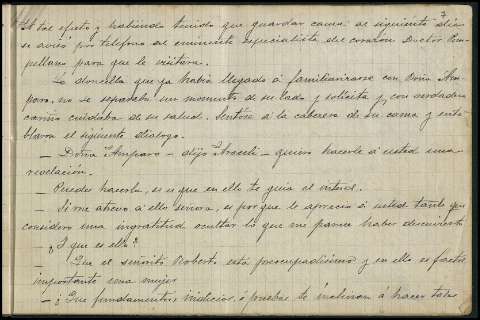 7
A tal efecto y habiendo tenido que guardar cama al siguiente dia
se avisó por teléfono al eminente especialista del corazón Doctor
pellano para que le visitara.
La doncella que ya había llegado á familiarizarse con Doña Am-
paro, no se separaba un momento de su lado y solícita y con verdadero
cariño cuidaba de su salud. Sentóse á la cabecera de su cama y enta-
blaron el siguiente diálogo.
— Doña Amparo — dijo Araceli — quiero hacerle á usted una
revelación.
— Puedes hacerla, si es que en ello te guía el
— Si me atrevo á ello señora, es por que le aprecio á usted tanto que
considero una ingratitud ocultar lo que me parece haber descubierto
— ¿Y que es ello?
— Que el señorito Roberto está preocupadísimo y en ello es factor
importante una mujer.
— ¿Que fundamentos, indicios, ó pruebas te inclinan á hacer tales